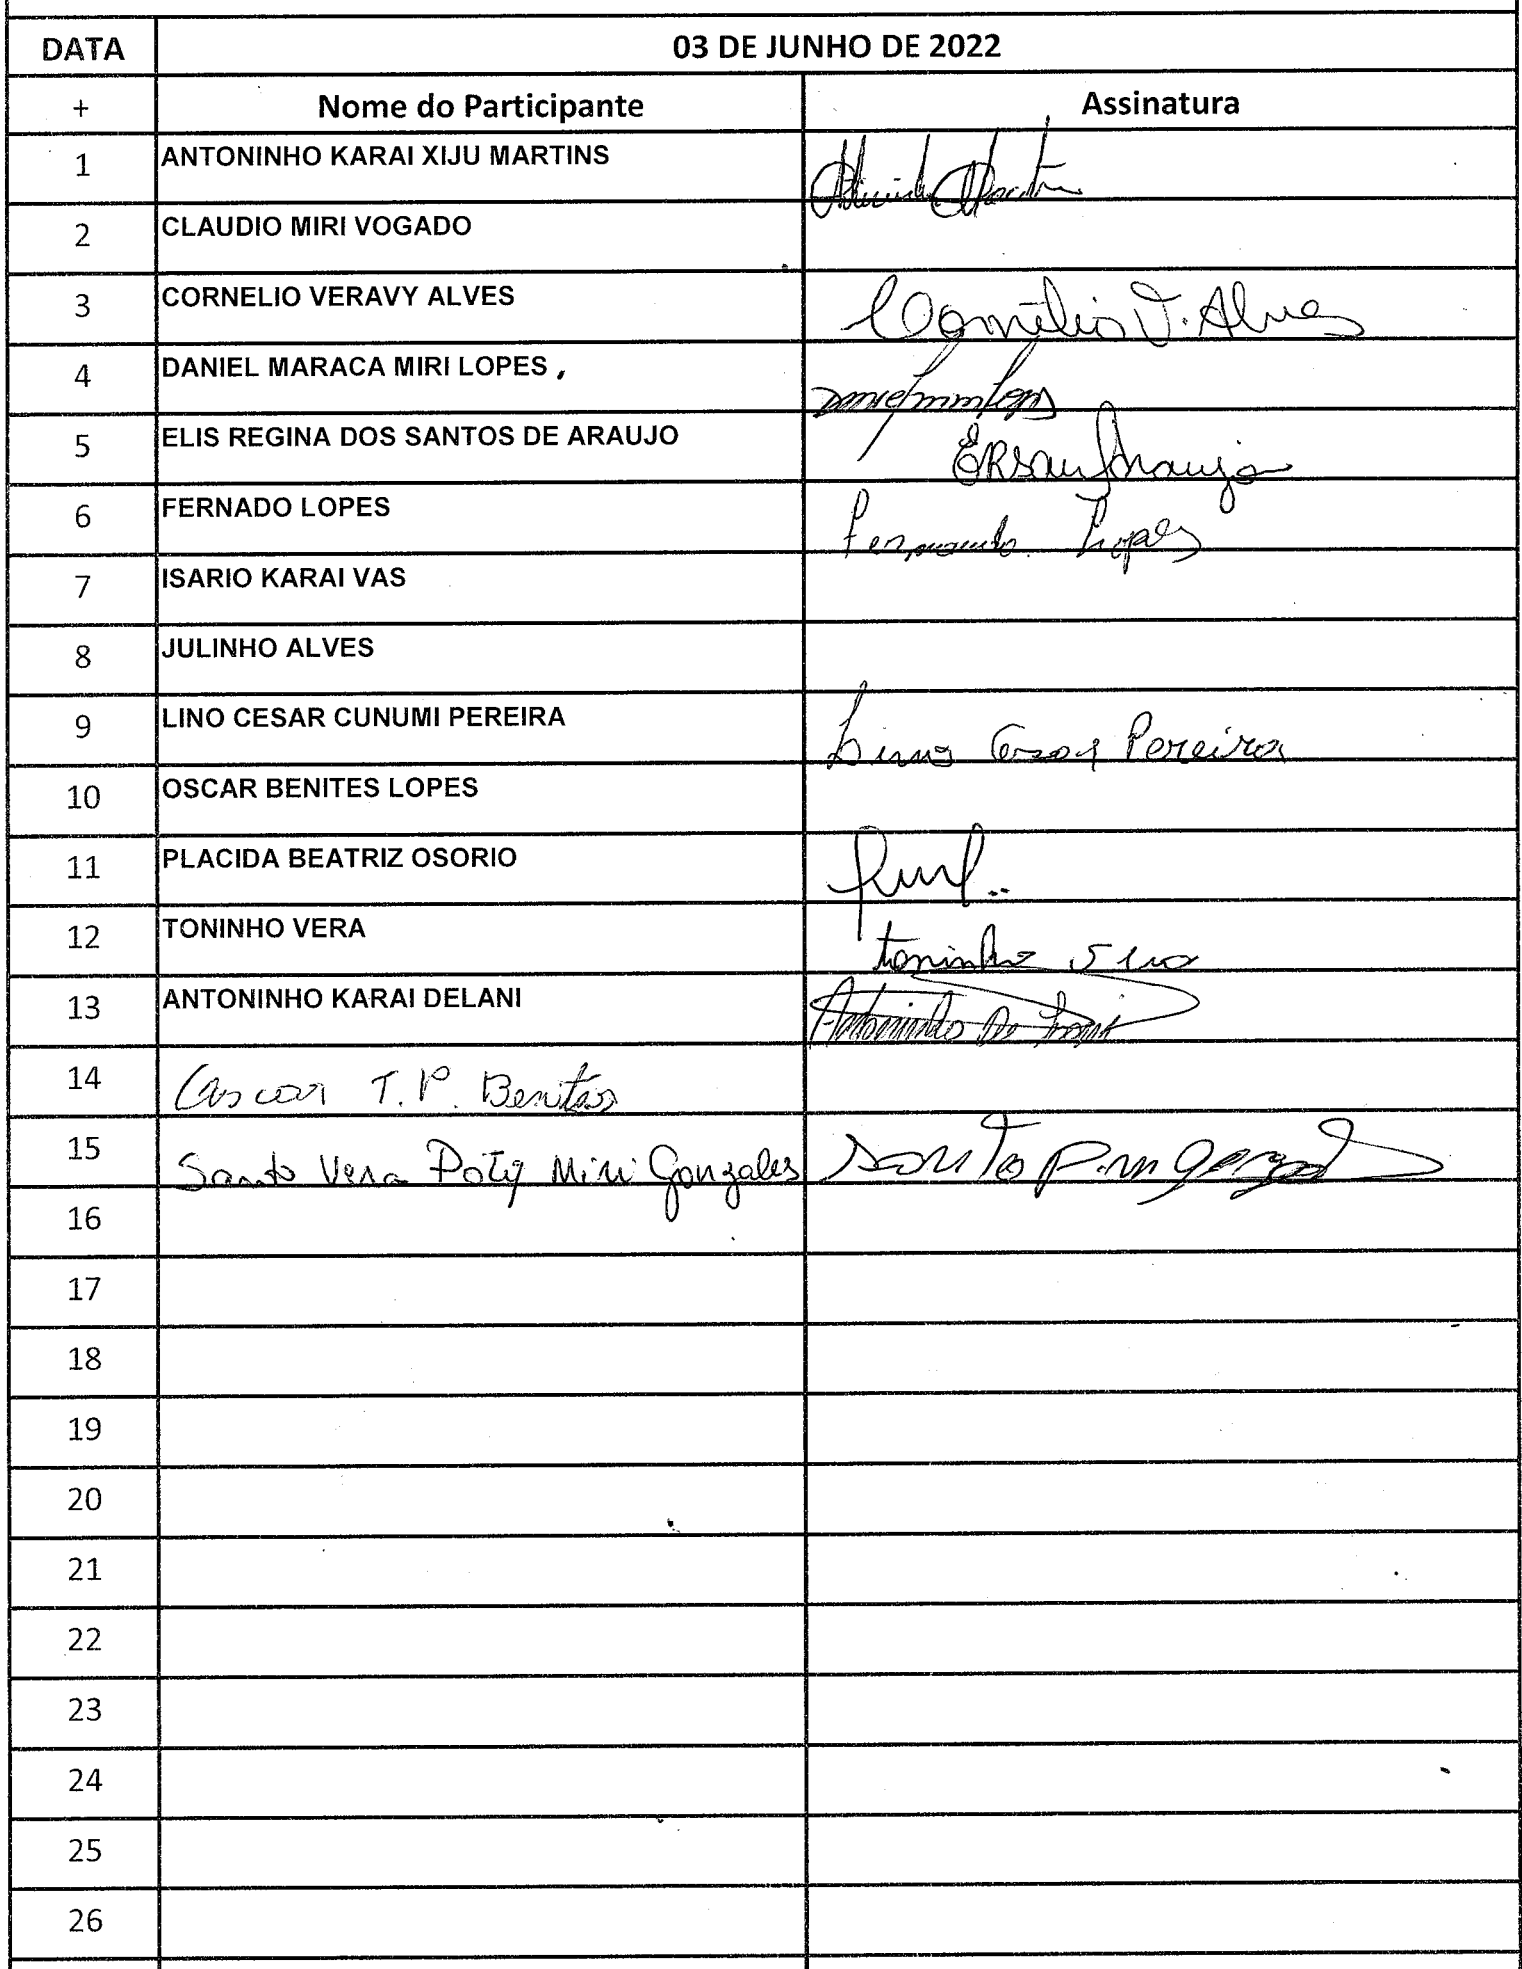 DATA 03 DE JUNHO DE 2022
+ Nome do Participante Assinatura
1 ANTONINHO KARAI XIJU MARTINS
2 CLAUDIO MIRI VOGADO
3 CORNELIO VERAVY ALVES Cornélio V. Alves
4 DANIEL MARACA MIRI LOPES ,
5 ELIS REGINA DOS SANTOS DE ARAUJO ERSAraujo
6 FERNADO LOPES Fernando Lopes
7 ISARIO KARAI VAS
8 JULINHO ALVES
9 LINO CESAR CUNUMI PEREIRA Lino Cesar Pereira
10 OSCAR BENITES LOPES
11 PLACIDA BEATRIZ OSORIO
12 TONINHO VERA toninho
13 ANTONINHO KARAI DELANI Antoninho
14 T.P. Benites
15 Santo Vera Poty Miri Gonzales Santo P.M Gonzales
16
17
18
19
20
21
22
23
24
25
26